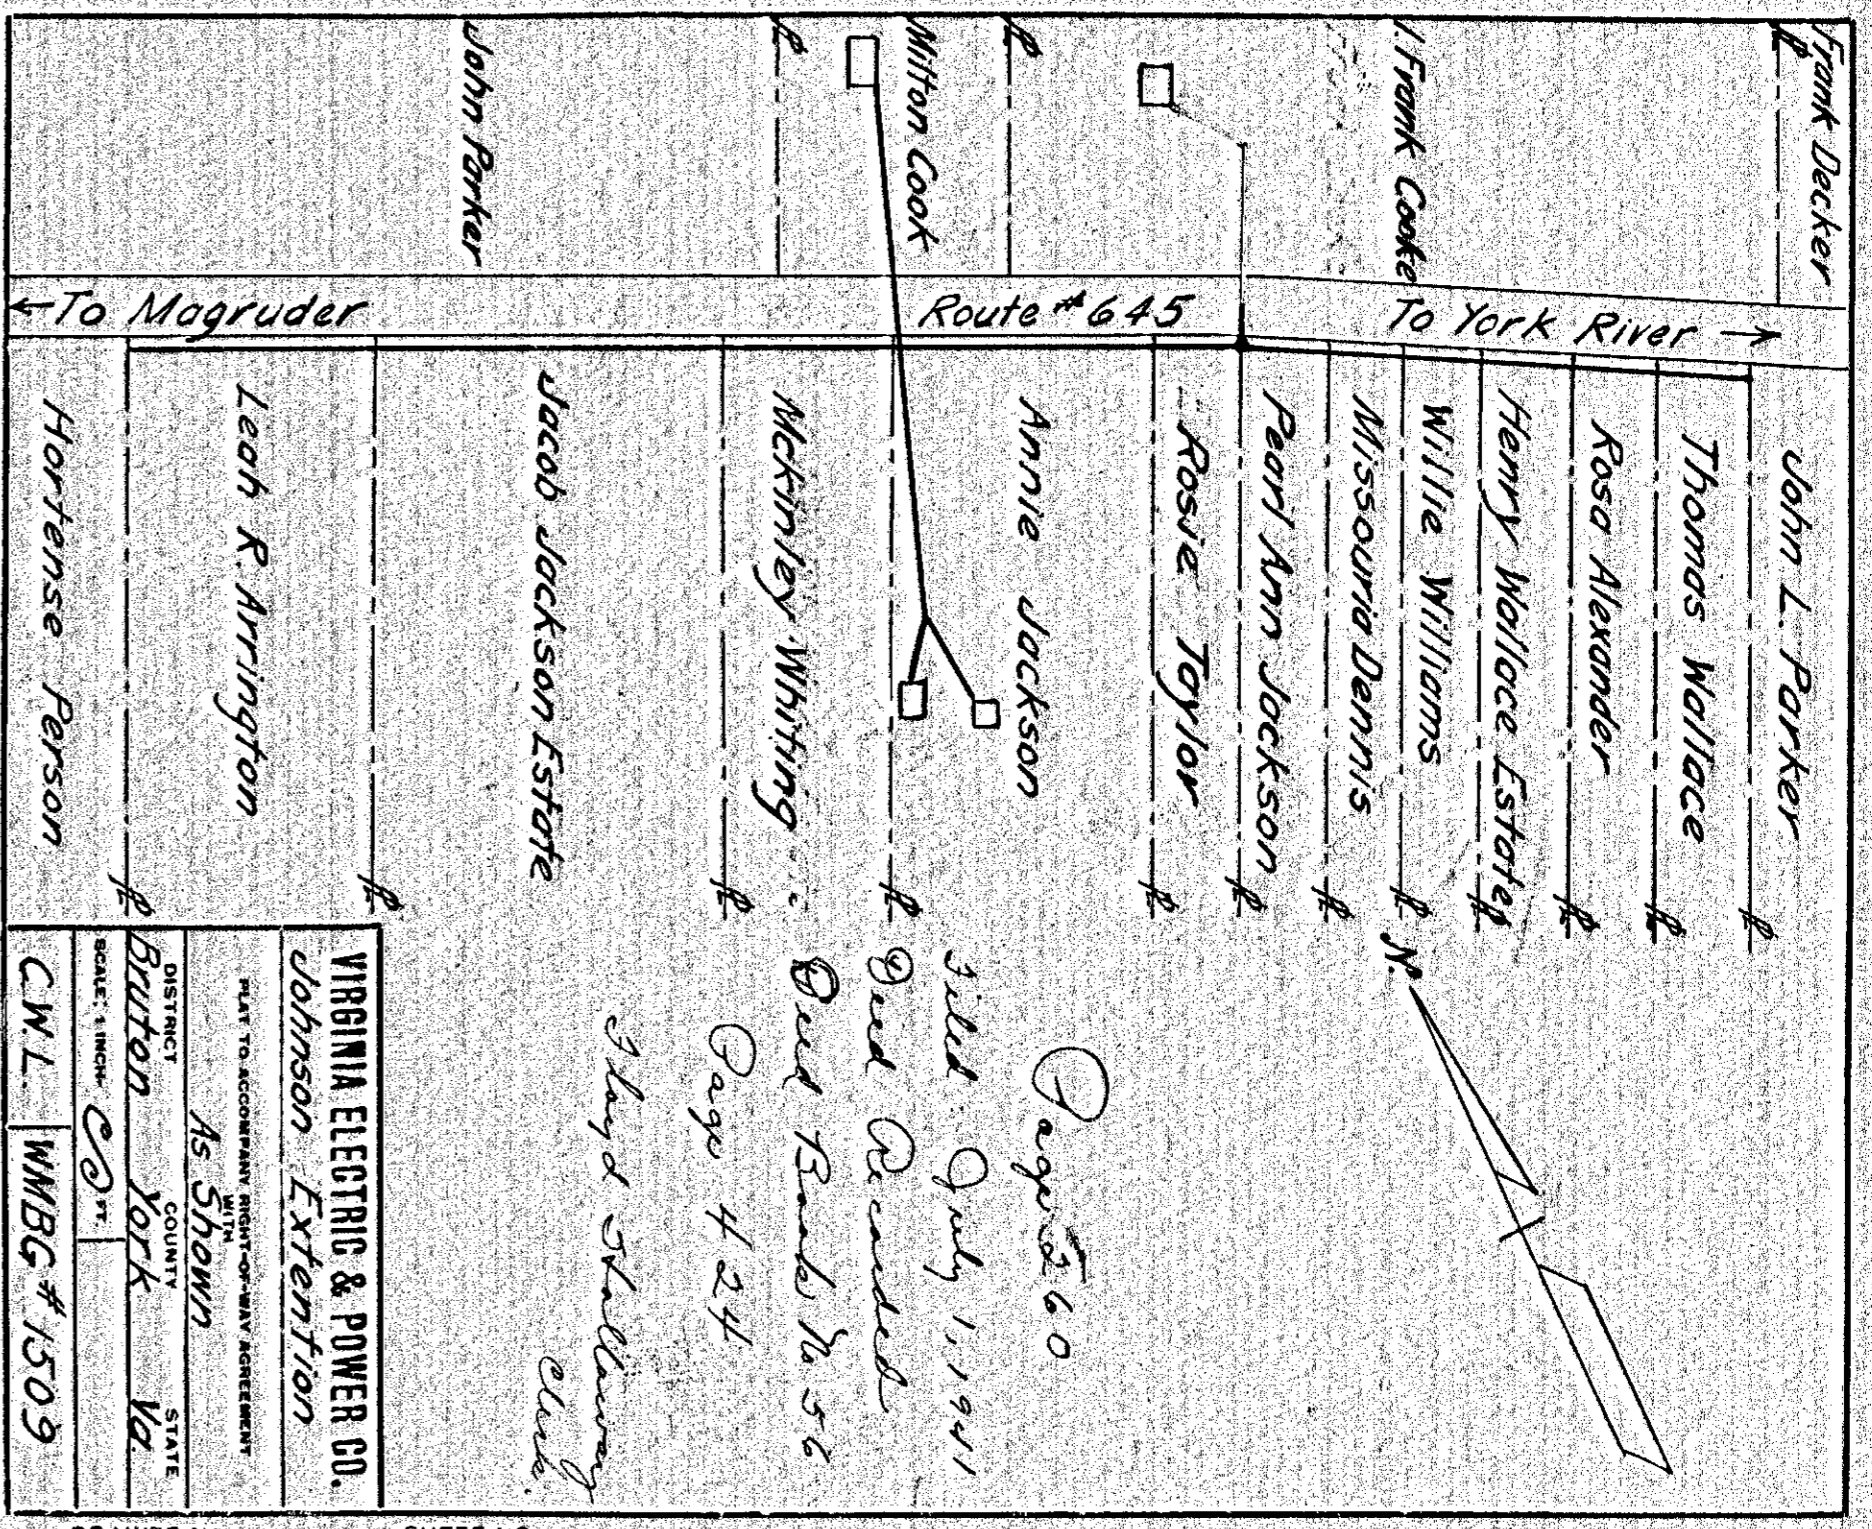 Frank Decker
I. Frank Cooke
Milton Cook
John Parker
← To Magruder
Route # 645
To York River →
John L. Parker
Thomas Wallace
Rosa Alexander
Henry Wallace Estate
Willie Williams
Missouria Dennis
Pearl Ann Jackson
Rosie Taylor
Annie Jackson
McKinley Whiting
Jacob Jackson Estate
Leah R. Arrington
Hortense Person
N.
Page 260
Filed July 1, 1941
Deed Recorded
Deed Book No 56
Page 424
Floyd Holloway
Clerk.
VIRGINIA ELECTRIC & POWER CO.
Johnson Extention
PLAT TO ACCOMPANY RIGHT-OF-WAY AGREEMENT
WITH
As Shown
DISTRICT COUNTY STATE
Bruton York Va.
SCALE, 1 INCH= FT.
C.W.L. WMBG # 1509